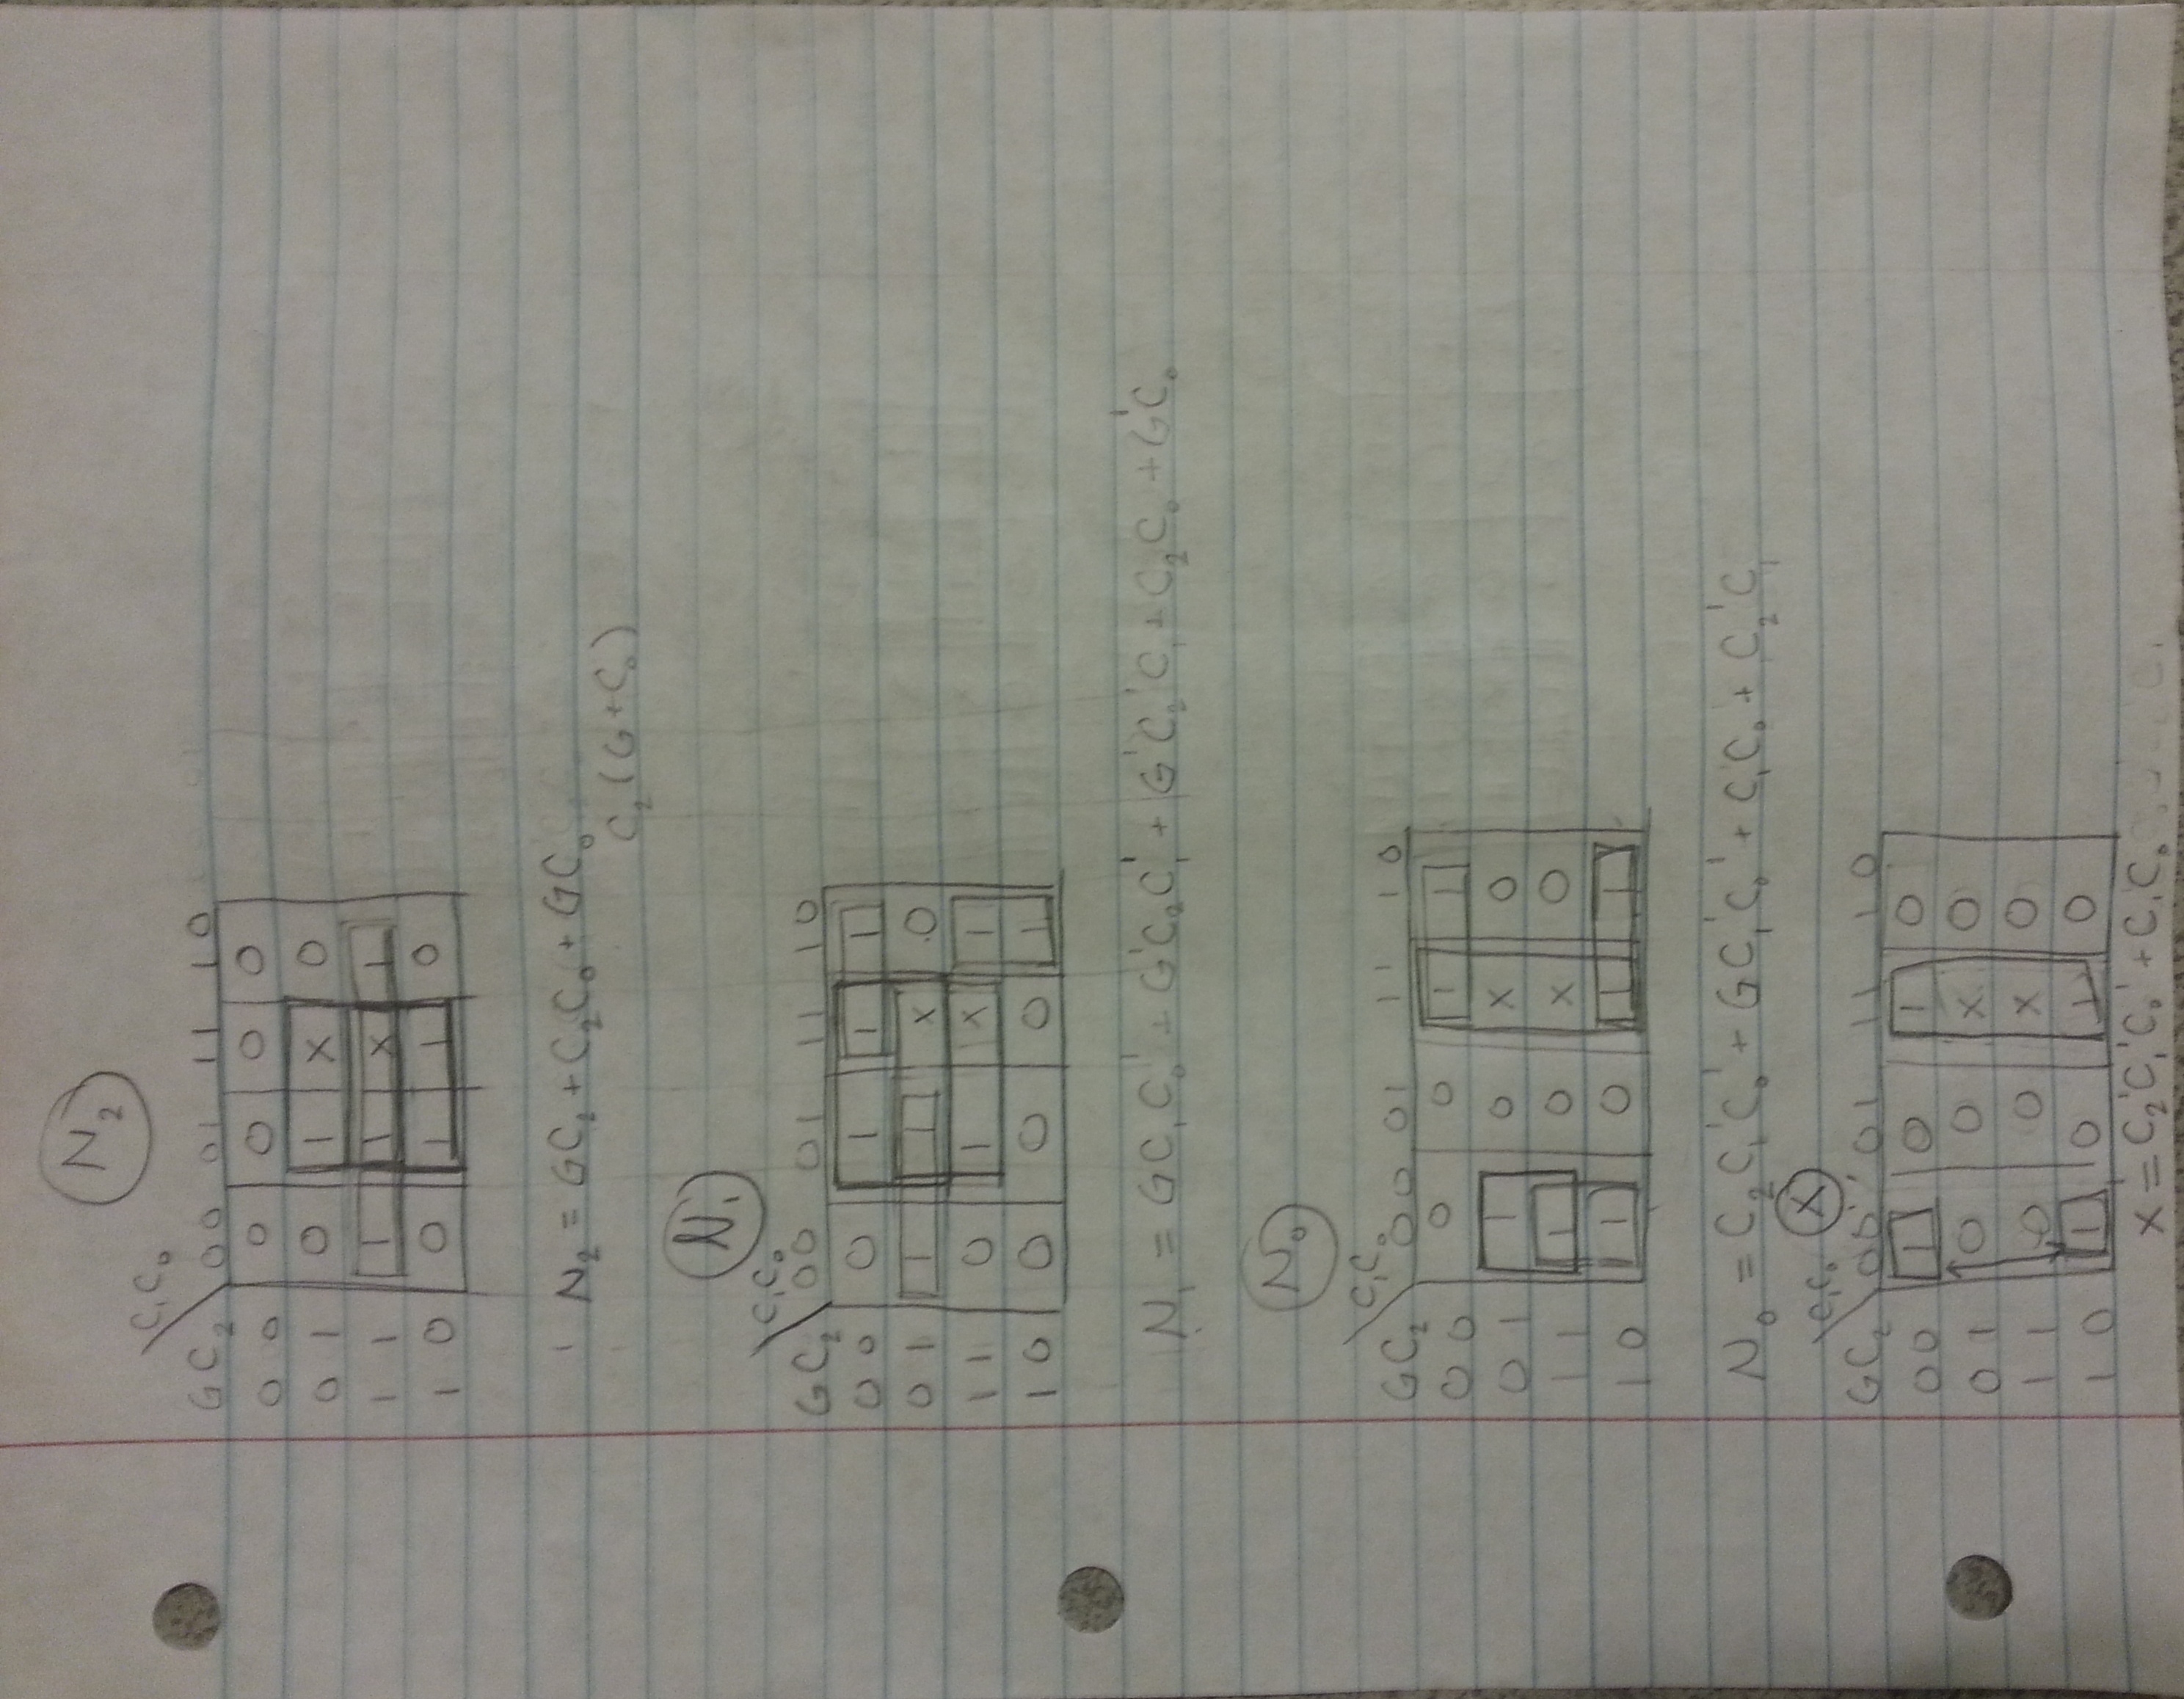 N₂
C₁C₀
GC₂ 00 01 11 10
00 0 0 0 0
01 0 1 X 0
11 1 1 X 1
10 0 1 1 0
N₂ = GC₂ + C₂C₀ + GC₀
C₂(G+C₀)
N₁
C₁C₀
GC₂ 00 01 11 10
00 0 1 1 1
01 1 1 X 0
11 0 1 X 1
10 0 0 0 1
N₁ = GC₁C₀' + G'C₂C₁' + G'C₂'C₁ + C₂C₀ + G'C₀
N₀
C₁C₀
GC₂ 00 01 11 10
00 0 0 1 1
01 1 0 X 0
11 1 0 X 0
10 1 0 1 1
N₀ = C₂C₁'C₀' + GC₁'C₀' + C₁C₀ + C₂'C₁
X
C₁C₀
GC₂ 00 01 11 10
00 1 0 1 0
01 0 0 X 0
11 0 0 X 0
10 1 0 1 0
X = C₂'C₁'C₀' + C₁C₀